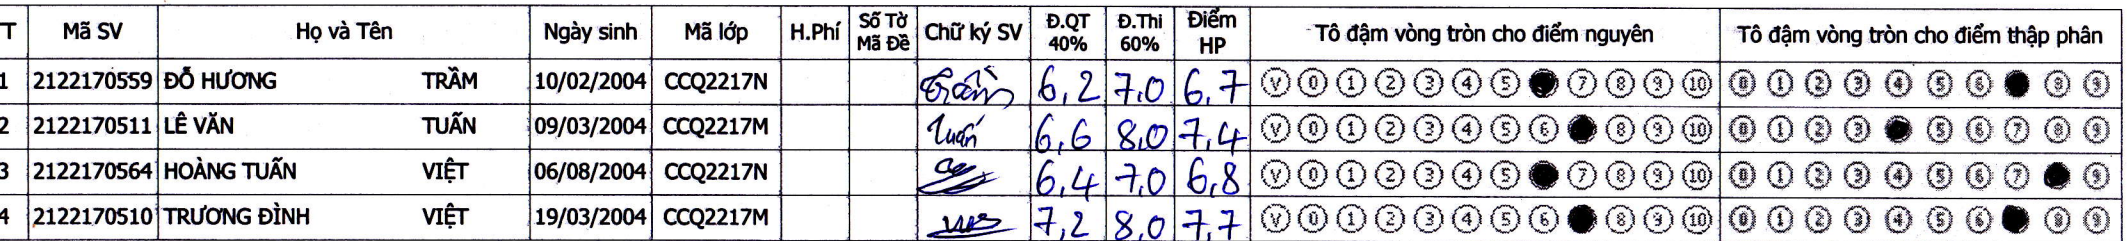 T Mã SV Họ và Tên Ngày sinh Mã lớp H.Phí Số Tờ Mã Đề Chữ ký SV Đ.QT 40% Đ.Thi 60% Điểm HP Tô đậm vòng tròn cho điểm nguyên Tô đậm vòng tròn cho điểm thập phân
1 2122170559 ĐỖ HƯƠNG TRẦM 10/02/2004 CCQ2217N Trầm 6,2 7,0 6,7 V 0 1 2 3 4 5 7 8 9 10 0 1 2 3 4 5 6 8 9
2 2122170511 LÊ VĂN TUẤN 09/03/2004 CCQ2217M Tuấn 6,6 8,0 7,4 V 0 1 2 3 4 5 6 8 9 10 0 1 2 3 5 6 7 8 9
3 2122170564 HOÀNG TUẤN VIỆT 06/08/2004 CCQ2217N 6,4 7,0 6,8 V 0 1 2 3 4 5 7 8 9 10 0 1 2 3 4 5 6 7 9
4 2122170510 TRƯƠNG ĐÌNH VIỆT 19/03/2004 CCQ2217M 7,2 8,0 7,7 V 0 1 2 3 4 5 6 8 9 10 0 1 2 3 4 5 6 8 9